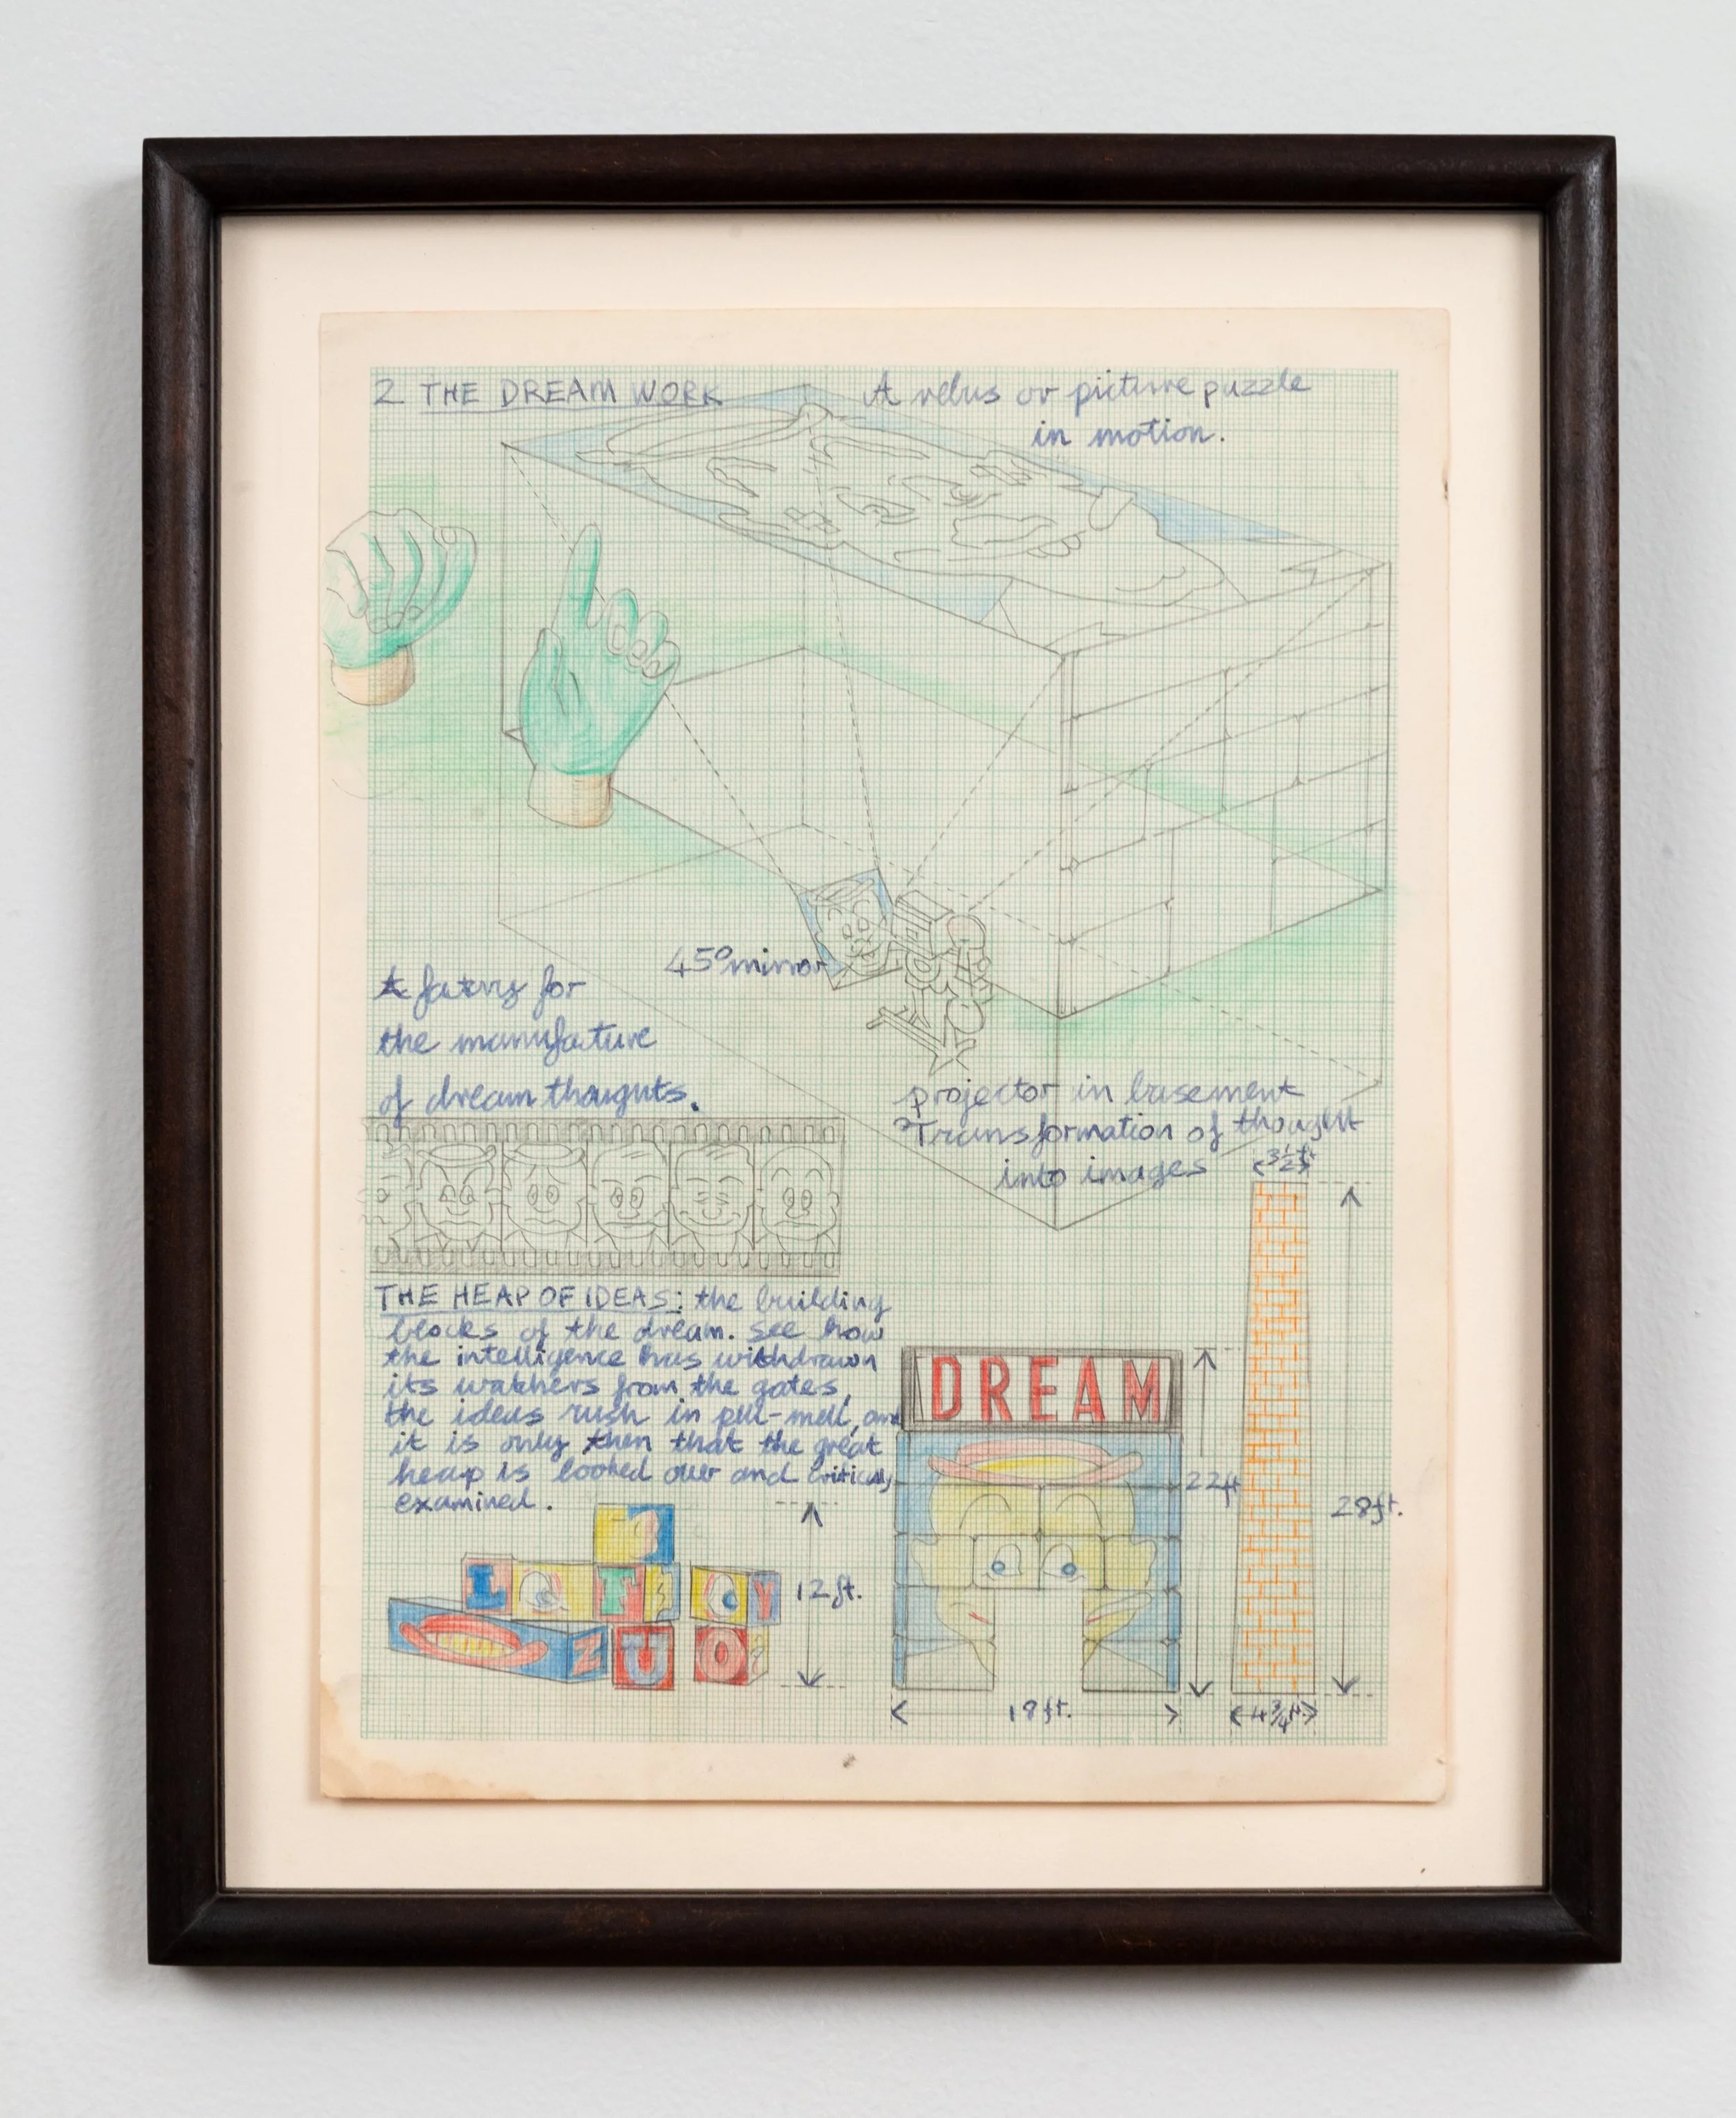 2 THE DREAM WORK
A rebus or picture puzzle
in motion.
45° mirror
A fatory for
the manufature
of dream thoughts.
projector in basement
Transformation of thought
into images
THE HEAP OF IDEAS: the building
blocks of the dream. See how
the intelligence has withdrawn
its watchers from the gates,
the ideas rush in pell-mell, and
it is only then that the great
heap is looked over and critically
examined.
3½ft
DREAM
22ft
28ft.
12ft.
L
F
Y
Z U O
18ft.
4¾ft.